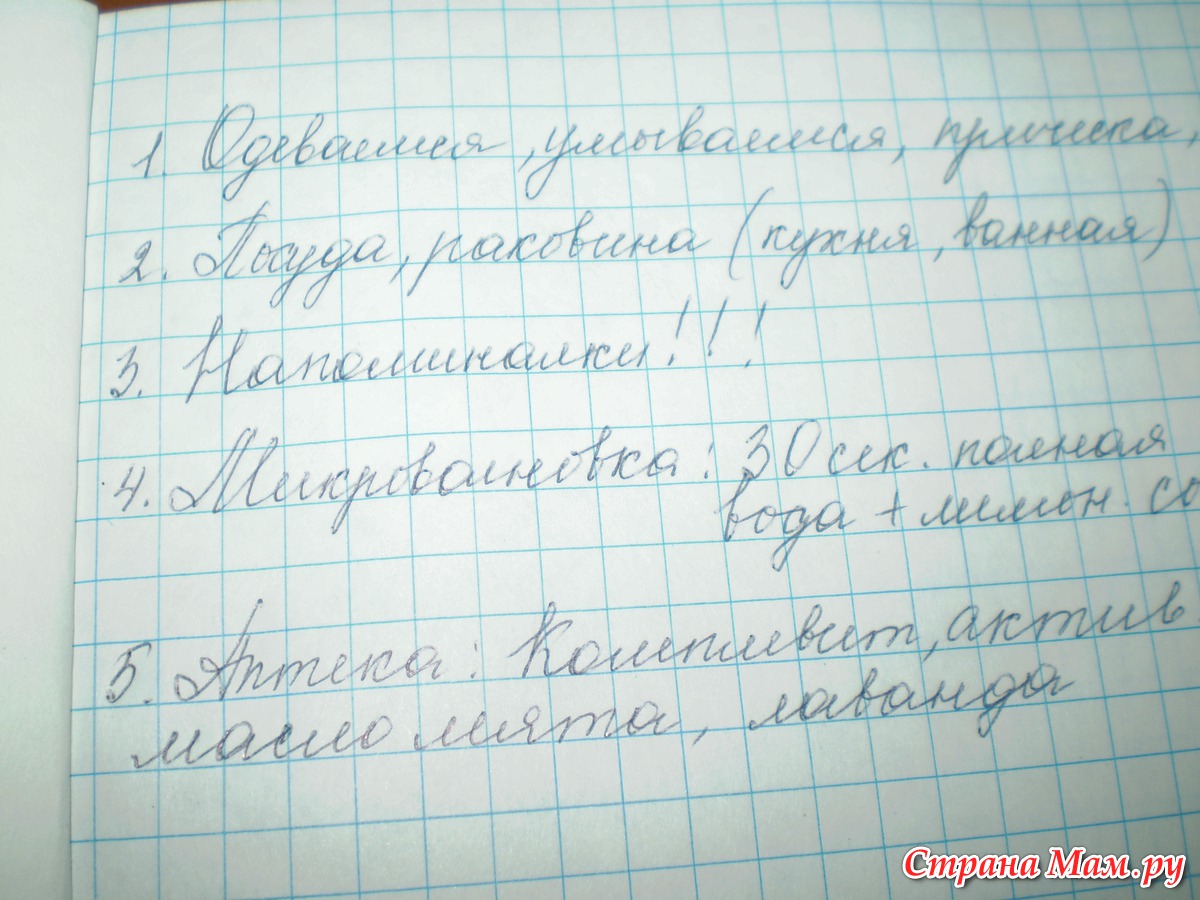 1. Одеваемся, умываемся, причёска,
2. Посуда, раковина (кухня, ванная)
3. Напоминалки!!!
4. Микроволновка: 30 сек. полная
вода + лимон. со
5. Аптека: Компливит, актив
масло мята, лаванда
Страна Мам.ру